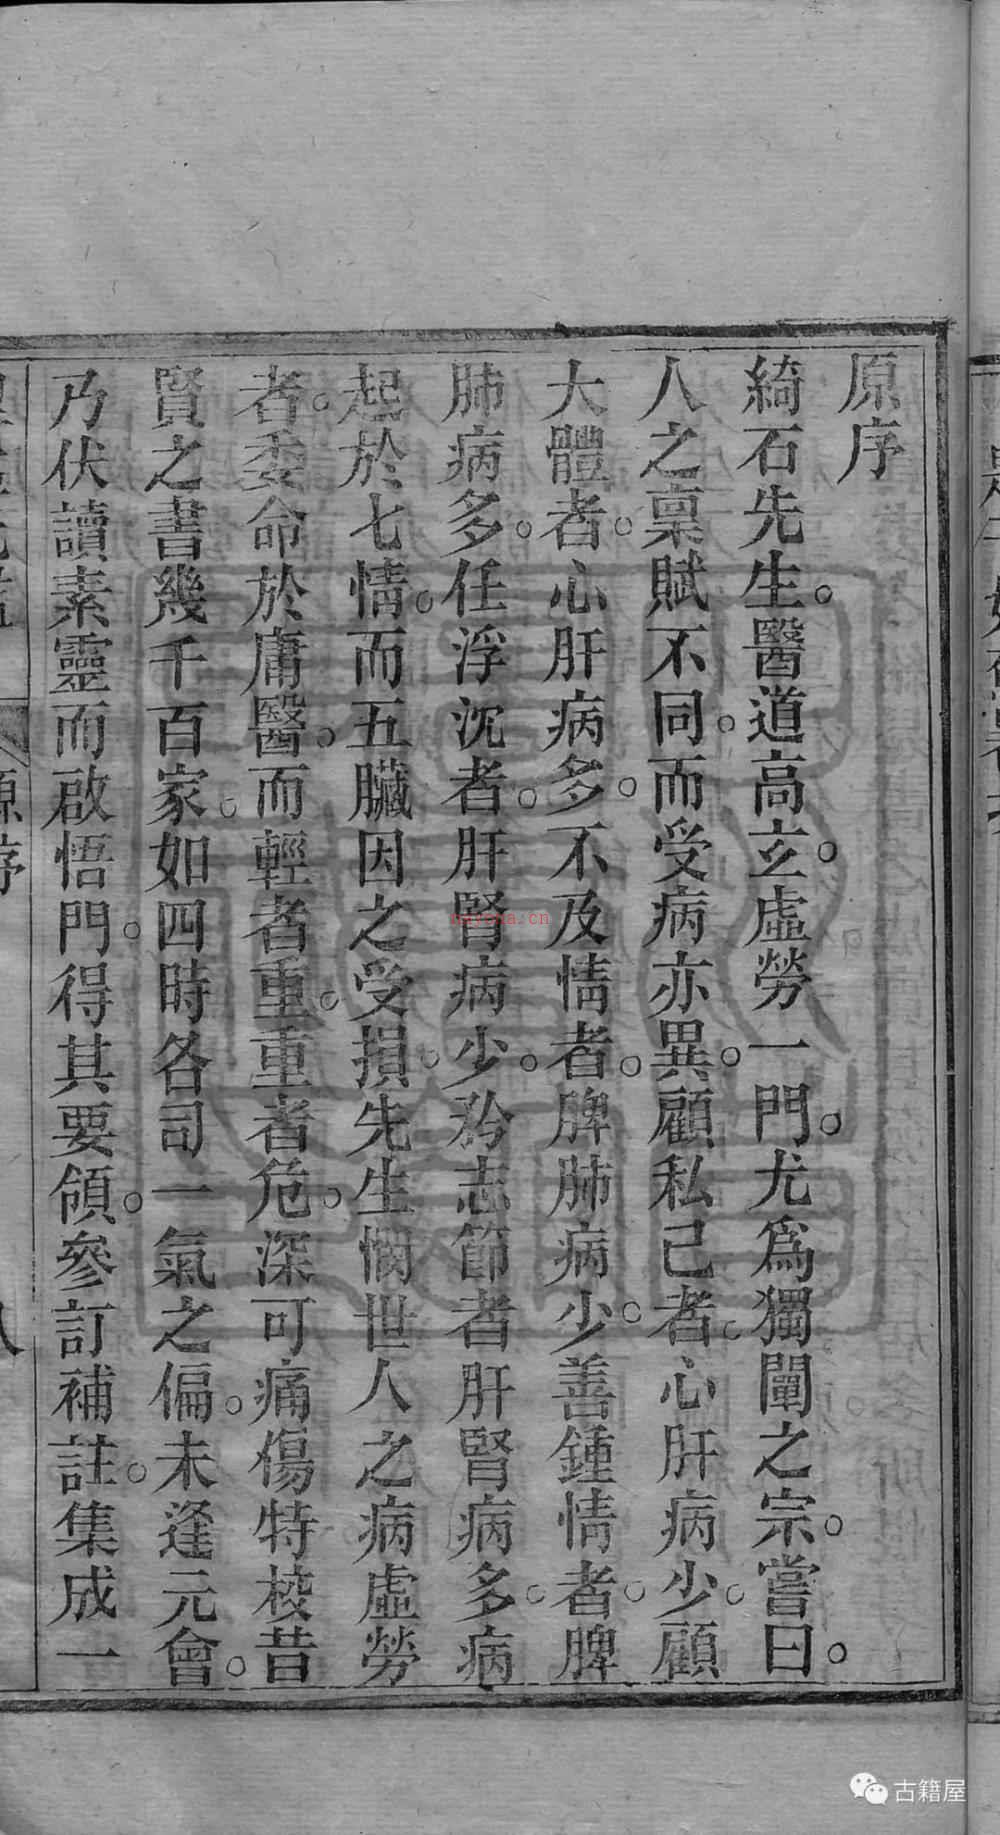 原序
綺石先生醫道高玄虛勞一門尤爲獨闡之宗嘗曰
人之稟賦不同而受病亦異顧私己者心肝病少顧
大體者心肝病多不及情者脾肺病少善鍾情者脾
肺病多任浮沉者肝腎病少矜志節者肝腎病多病
起於七情而五臟因之受損先生憫世人之病虛勞
者委命於庸醫而輕者重重者危深可痛傷特校昔
賢之書幾千百家如四時各司一氣之偏未逢元會
乃伏讀素靈而啟悟門得其要領參訂補註集成一
原序
八
nayona.cn
古籍屋